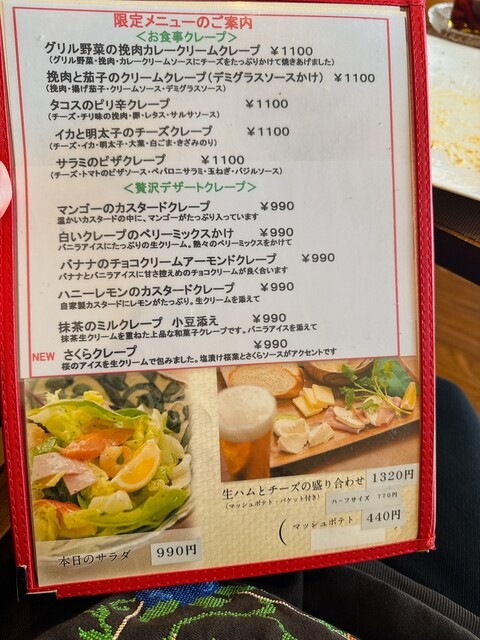 限定メニューのご案内
<お食事クレープ>
グリル野菜の挽肉カレークリームクレープ ￥1100
(グリル野菜・挽肉・カレークリームソースにチーズをたっぷりかけて焼きあげました)
挽肉と茄子のクリームクレープ(デミグラスソースかけ) ￥1100
(挽肉・揚げ茄子・クリームソース・デミグラスソース)
タコスのピリ辛クレープ ￥1100
(チーズ・チリ味の挽肉・卵・レタス・サルサソース)
イカと明太子のチーズクレープ ￥1100
(チーズ・イカ・明太子・大葉・白ごま・きざみのり)
サラミのピザクレープ ￥1100
(チーズ・トマトのピザソース・ペパロニサラミ・玉ねぎ・バジルソース)
<贅沢デザートクレープ>
マンゴーのカスタードクレープ ￥990
温かいカスタードの中に、マンゴーがたっぷり入っています
白いクレープのベリーミックスかけ ￥990
バニラアイスにたっぷりの生クリーム。熱々のベリーミックスをかけて
バナナのチョコクリームアーモンドクレープ ￥990
バナナとバニラアイスに甘さ控えめのチョコクリームが良く合います
ハニーレモンのカスタードクレープ ￥990
自家製カスタードにレモンがたっぷり。生クリームを添えて
抹茶のミルクレープ 小豆添え ￥990
抹茶生クリームを重ねた上品な和菓子クレープです。バニラアイスを添えて
NEW さくらクレープ ￥990
桜のアイスを生クリームで包みました。塩漬け桜葉とさくらソースがアクセントです
生ハムとチーズの盛り合わせ 1320円
(マッシュポテト・バケット付き) ハーフサイズ 770円
( マッシュポテト 440円
本日のサラダ 990円